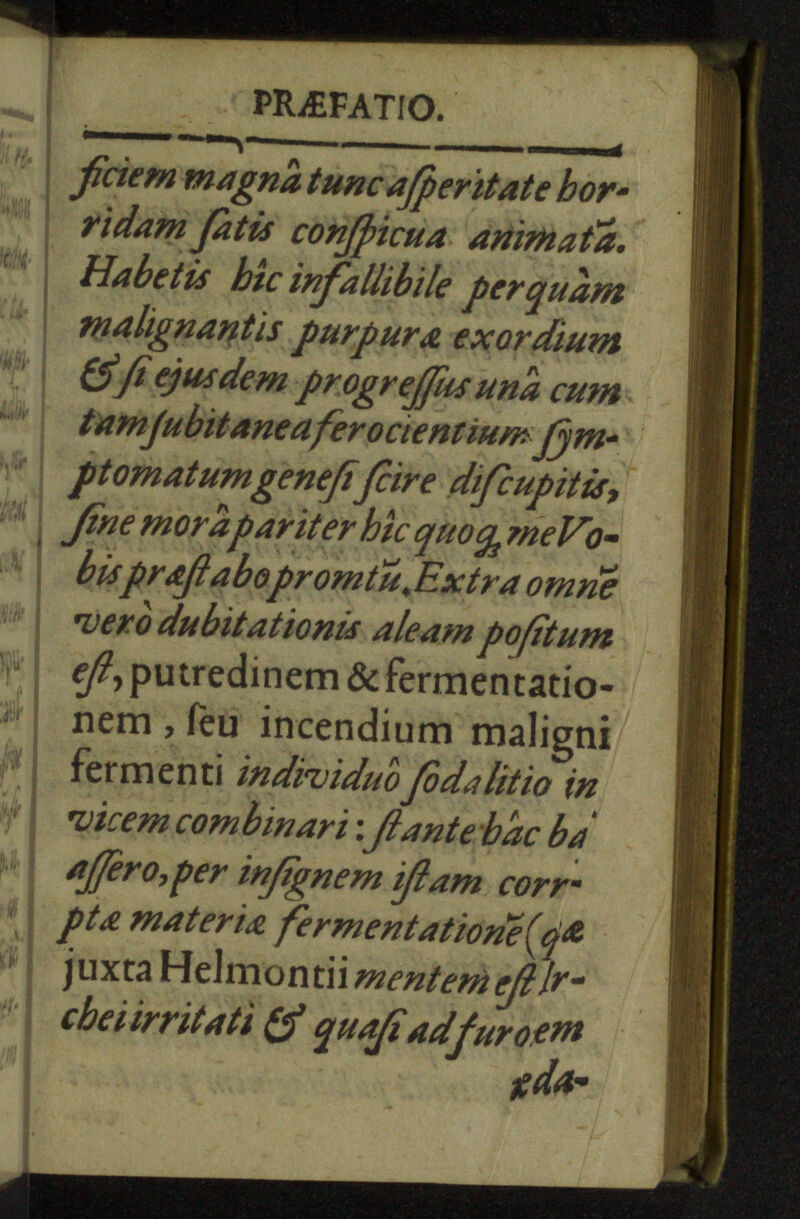 PRÆFATIO.
ficiem magnâ tunc aſperitate hor-
ridam ſatis conſpicua animatâ.
Habetis hîc infallibile perquàm
malignantis purpuræ exordium
& ſi ejusdem progreſſus unà cum
tam ſubitanea ferocientium ſym-
ptomatum geneſi ſcire diſcupitis,
ſine morâ pariter hîc quoq; me Vo-
bis præſtabo promtũ. Extra omnẽ
verò dubitationis aleam poſitum
eſt, putredinem & fermentatio-
nem, ſeu incendium maligni
fermenti individuô ſodalitio in
vicem combinari: ſtante hâc ba
aſſero, per inſignem iſtam corr-
ptæ materiæ fermentationẽ (qæ
juxta Helmontii mentem eſt Ir-
chei irritati & quaſi ad furoem
xda-